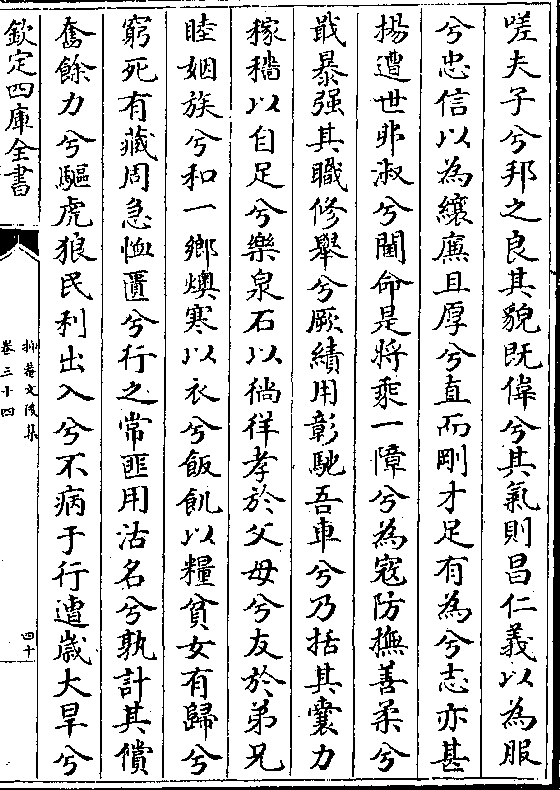 嗟夫子兮邦之良其貌既偉兮其氣則昌仁義以為服
兮忠信以為纕廉且厚兮直而剛才足有為兮志亦甚
揚遭世非淑兮閫命是將乘一障兮為寇防撫善柔兮
戢暴强其職修舉兮厥績用彰馳吾車兮乃括其囊力
稼穡以自足兮樂泉石以徜徉孝於父母兮友於弟兄
睦姻族兮和一鄉燠寒以衣兮飯飢以糧貧女有歸兮
窮死有藏周急恤匱兮行之常匪用沽名兮孰計其償
奮餘力兮驅虎狼民利出入兮不病于行遭歲大旱兮
欽定四庫全書
抑菴文後集
卷三十四
四十